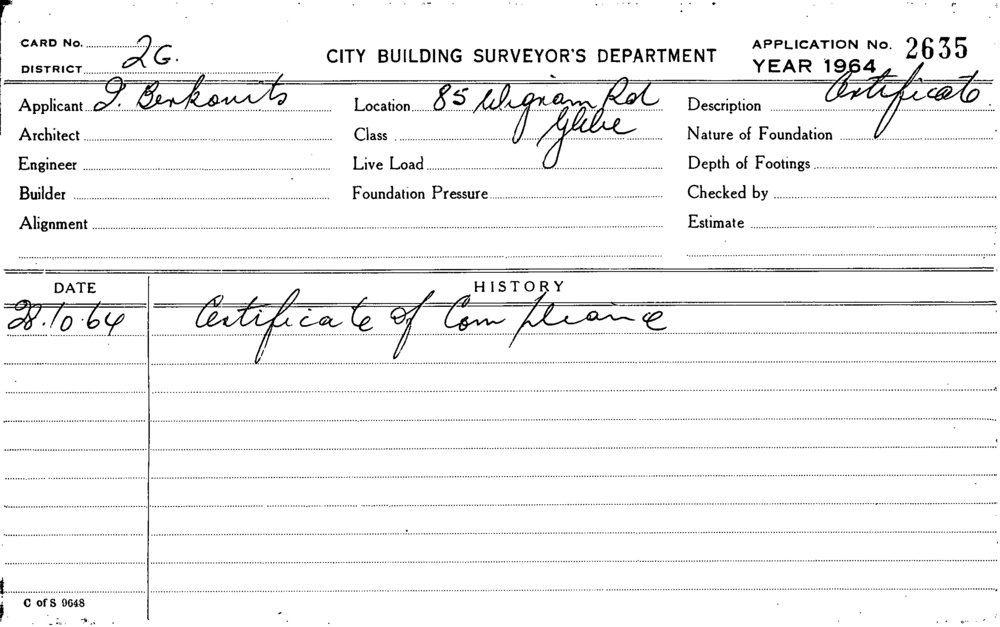 CARD No. 2G.
DISTRICT
CITY BUILDING SURVEYOR'S DEPARTMENT
APPLICATION No. 2635
YEAR 1964
Applicant I. Berkovits
Location 85 Wigram Rd
Glebe
Description Certificate
Architect
Class
Nature of Foundation
Engineer
Live Load
Depth of Footings
Builder
Foundation Pressure
Checked by
Alignment
Estimate
DATE
HISTORY
28.10.64 Certificate of Compliance
C of S 9648